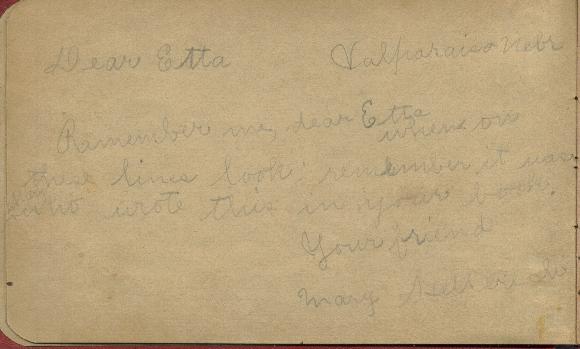 Dear Etta Valparaiso Nebr
Ramember me, dear Etta
when on
these lines look; remember it was
who wrote this in your book.
Your friend
Mary